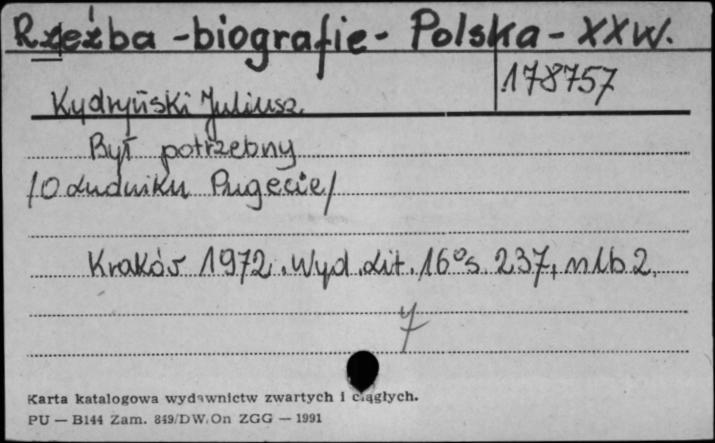 Rzeźba - biografie - Polska - XX w.
178757
Kydryński Juliusz.
Był potrzebny
/O Ludwiku Pugecie/
Kraków 1972. Wyd. Lit. 16° s. 237, nlb 2.
7
Karta katalogowa wydawnictw zwartych i ciągłych.
PU — B144 Zam. 849/DW/On ZGG — 1991